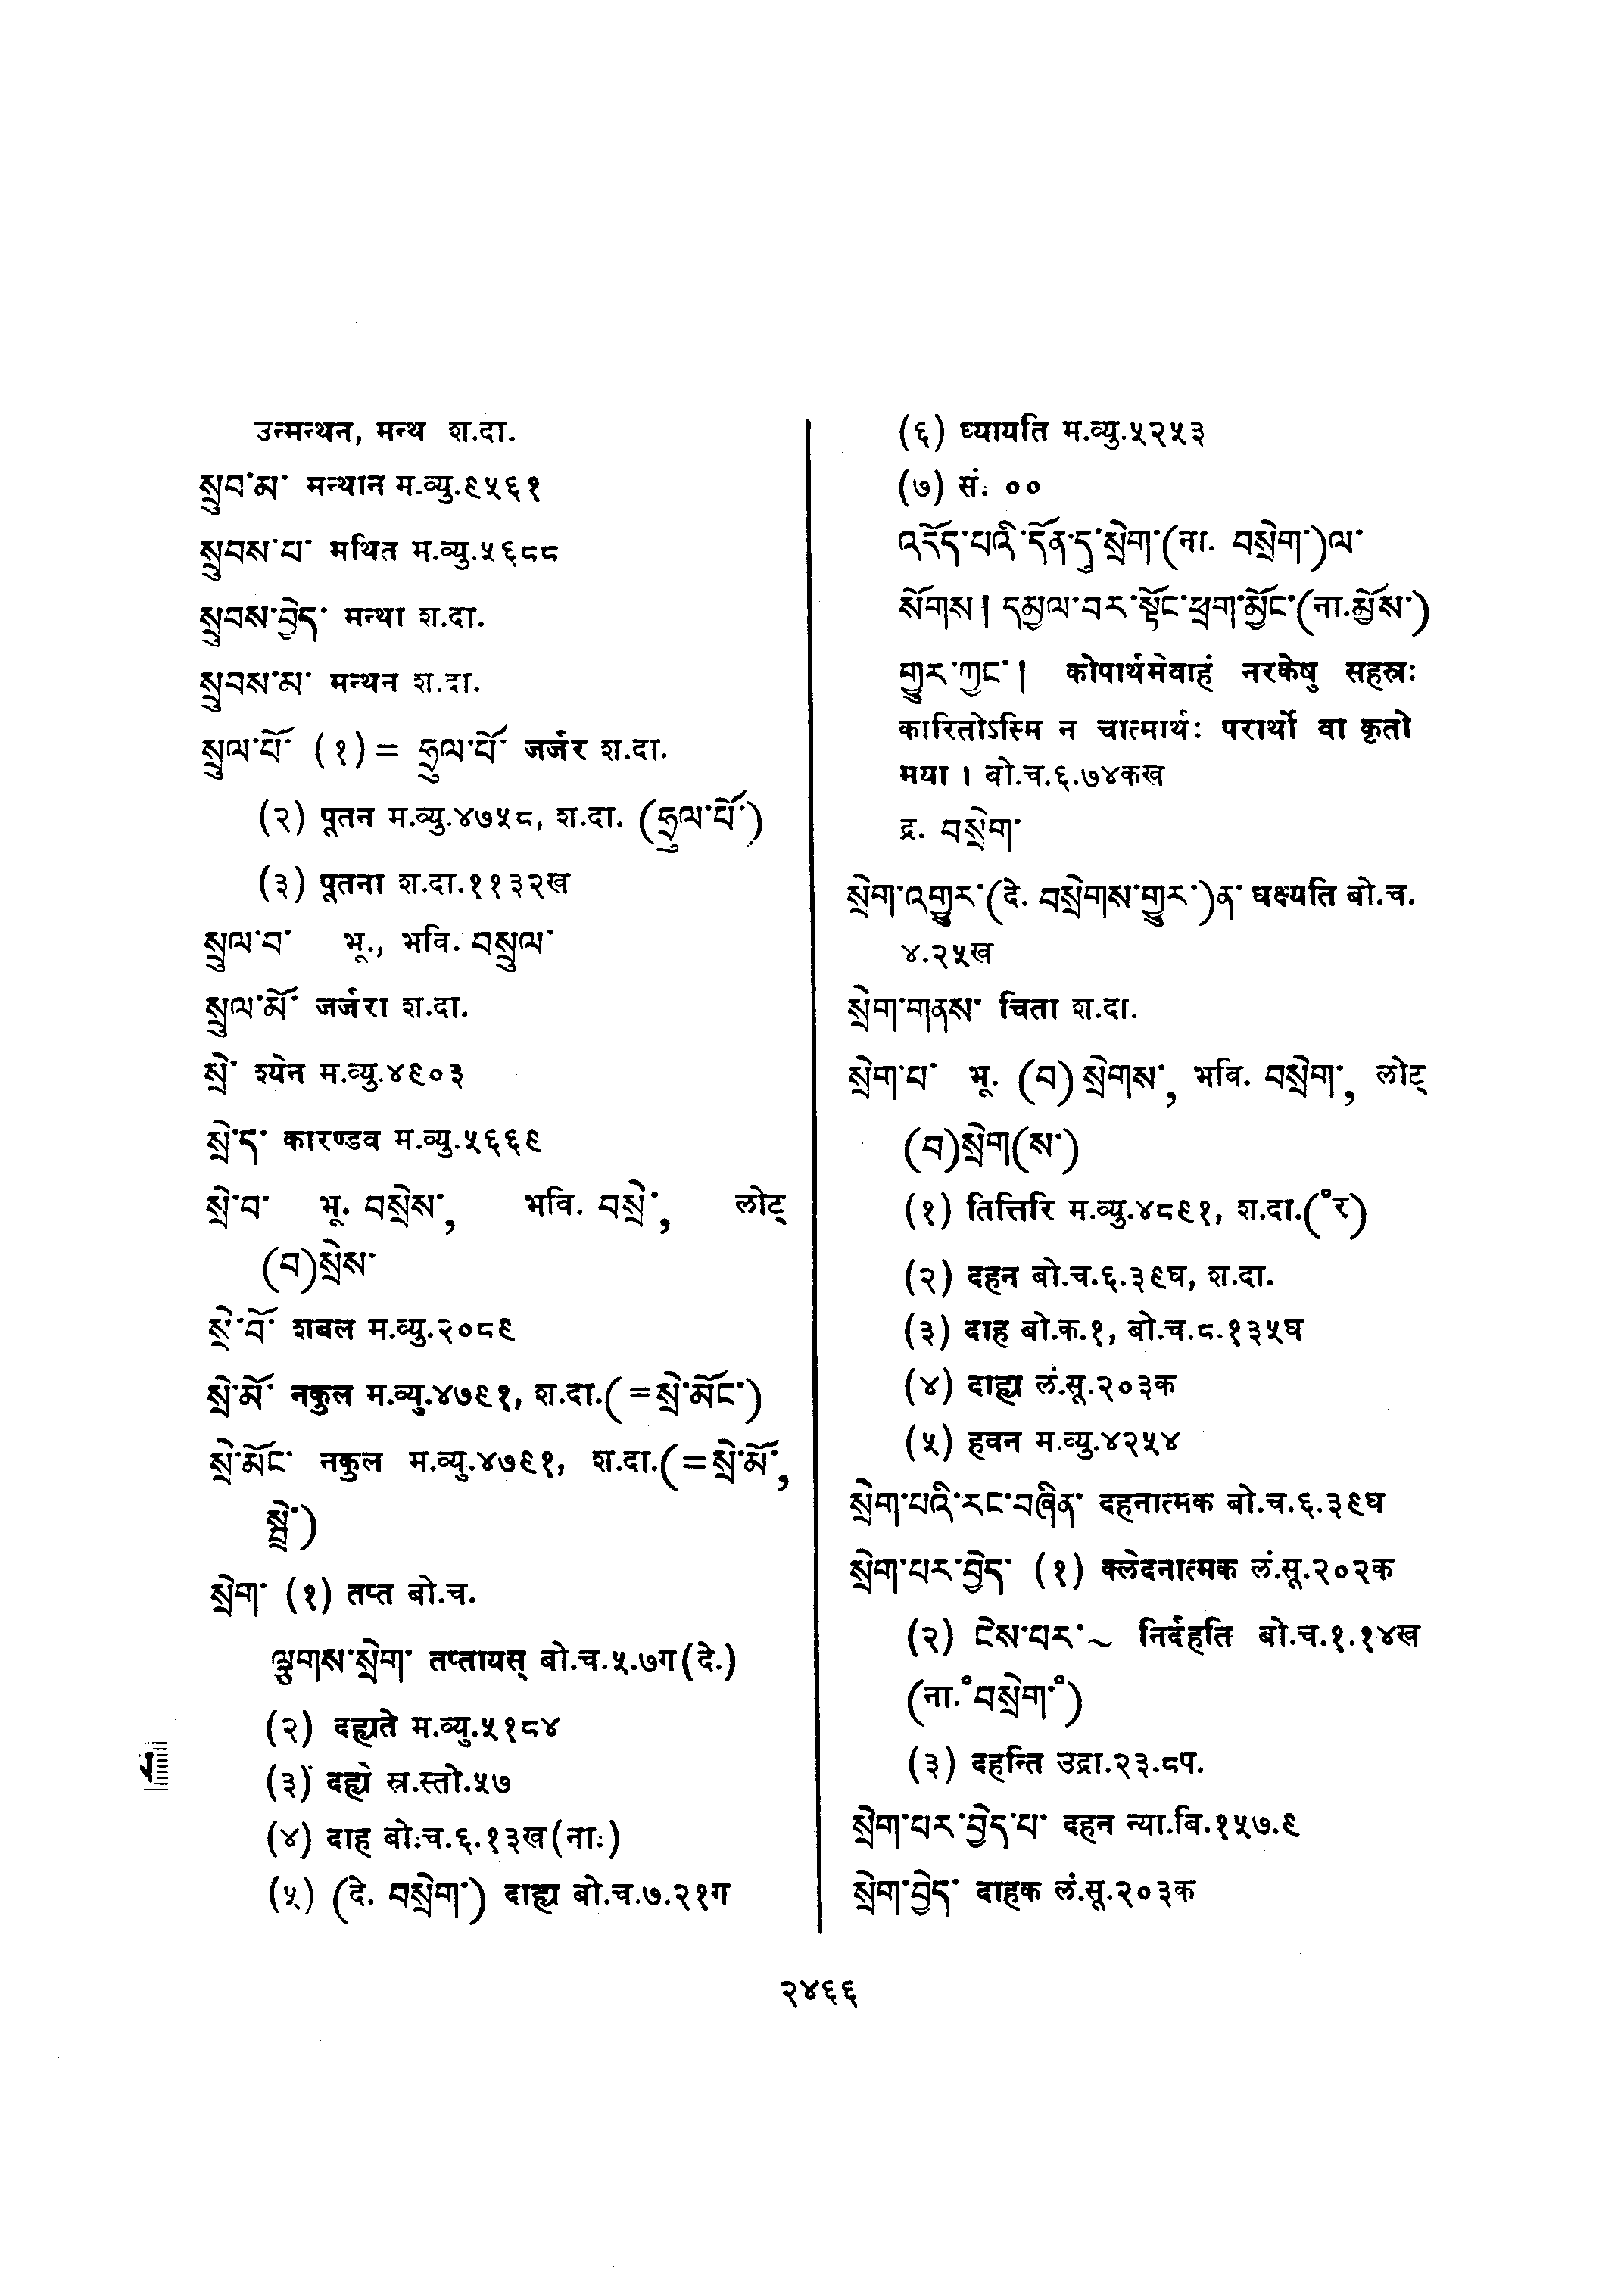 उन्मन्थन, मन्थ श.दा.
སྲུབ་མ་ मन्थान म.व्यु.९५६१
སྲུབས་པ་ मथित म.व्यु.५६८८
སྲུབས་བྱེད་ मन्था श.दा.
སྲུབས་མ་ मन्थन श.दा.
སྲུལ་པོ་ (१) = ཧྲུལ་པོ་ जर्जर श.दा.
(२) पूतन म.व्यु.४७५८, श.दा. (ཧྲུལ་པོ་)
(३) पूतना श.दा.११३२ख
སྲུལ་བ་ भू., भवि. བསྲུལ་
སྲུལ་མོ་ जर्जरा श.दा.
སྲེ་ श्येन म.व्यु.४९०३
སྲེ་ད་ कारण्डव म.व्यु.५६६९
སྲེ་བ་ भू. བསྲེས་, भवि. བསྲེ་, लोट्
(བ)སྲེས་
སྲེ་བོ་ शबल म.व्यु.२०८९
སྲེ་མོ་ नकुल म.व्यु.४७९१, श.दा.(=སྲེ་མོང་)
སྲེ་མོང་ नकुल म.व्यु.४७९१, श.दा.(=སྲེ་མོ་,
)
སྲེག་ (१) तप्त बो.च.
ལྕགས་སྲེག་ तप्तायस् बो.च.५.७ग(दे.)
(२) दह्यते म.व्यु.५१८४
(३) दह्ये स्र.स्तो.५७
(४) दाह बो.च.६.१३ख(ना.)
(५) (दे. བསྲེག་) दाह्य बो.च.७.२१ग
(६) ध्यायति म.व्यु.५२५३
(७) सं. ००
འདོད་པའི་དོན་དུ་སྲེག་(ना. བསྲེག་)ལ་
སོགས། དམྱལ་བར་སྟོང་ཕྲག་མྱོང་(ना.མྱོས་)
གྱུར་ཀྱང་། कोपार्थमेवाहं नरकेषु सहस्रः
कारितोऽस्मि न चात्मार्थः परार्थो वा कृतो
मया । बो.च.६.७४कख
द्र. བསྲེག་
སྲེག་འགྱུར་(दे. བསྲེགས་གྱུར་)ན་ धक्ष्यति बो.च.
४.२५ख
སྲེག་གནས་ चिता श.दा.
སྲེག་པ་ भू. (བ)སྲེགས་, भवि. བསྲེག་, लोट्
(བ)སྲེག(ས་)
(१) तित्तिरि म.व्यु.४८९१, श.दा.(॰र)
(२) दहन बो.च.६.३९घ, श.दा.
(३) दाह बो.क.१, बो.च.८.१३५घ
(४) दाह्य लं.सू.२०३क
(५) हवन म.व्यु.४२५४
སྲེག་པའི་རང་བཞིན་ दहनात्मक बो.च.६.३९घ
སྲེག་པར་བྱེད་ (१) क्लेदनात्मक लं.सू.२०२क
(२) ངེས་པར་~ निर्दहति बो.च.१.१४ख
(ना.॰བསྲེག་॰)
(३) दहन्ति उद्रा.२३.८प.
སྲེག་པར་བྱེད་པ་ दहन न्या.बि.१५७.९
སྲེག་བྱེད་ दाहक लं.सू.२०३क
२४६६